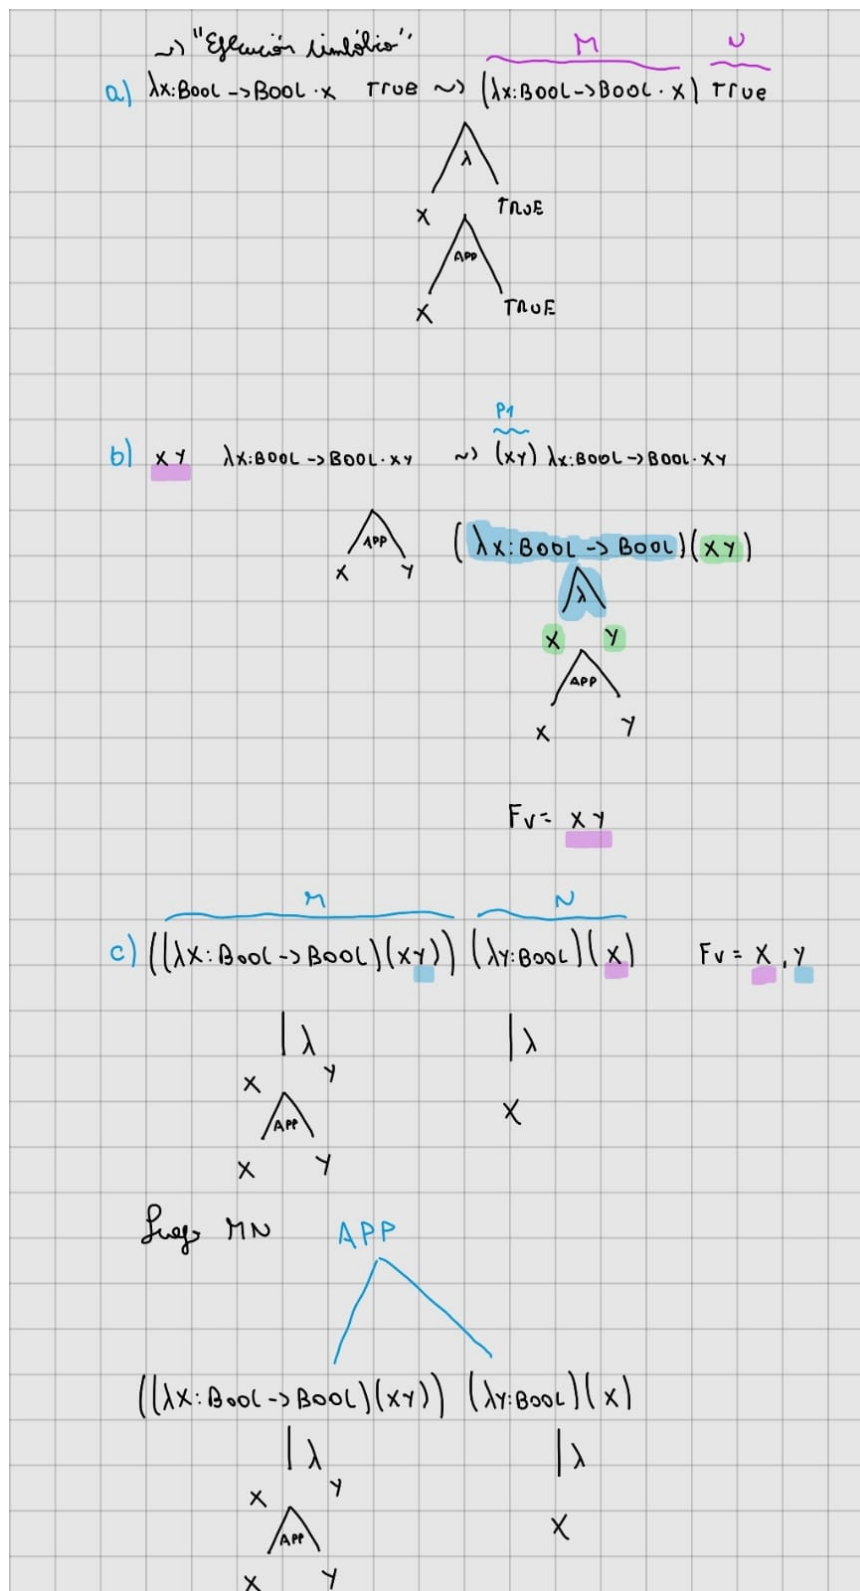 ~> "Ejecución simbólica"
M N
a) λx:BOOL->BOOL·x True ~> (λx:BOOL->BOOL·x) True
λ
X TRUE
APP
X TRUE
P1
b) XY λX:BOOL->BOOL·XY ~> (XY) λx:BOOL->BOOL·XY
(λX:BOOL->BOOL)(XY)
APP
X Y
λ
X Y
APP
X Y
Fv= XY
M N
c) ((λX:BOOL->BOOL)(XY)) (λY:BOOL)(X) Fv = X, Y
λ λ
X Y
APP X
X Y
Luego MN APP
((λX:BOOL->BOOL)(XY)) (λY:BOOL)(X)
λ λ
X Y
APP X
X Y